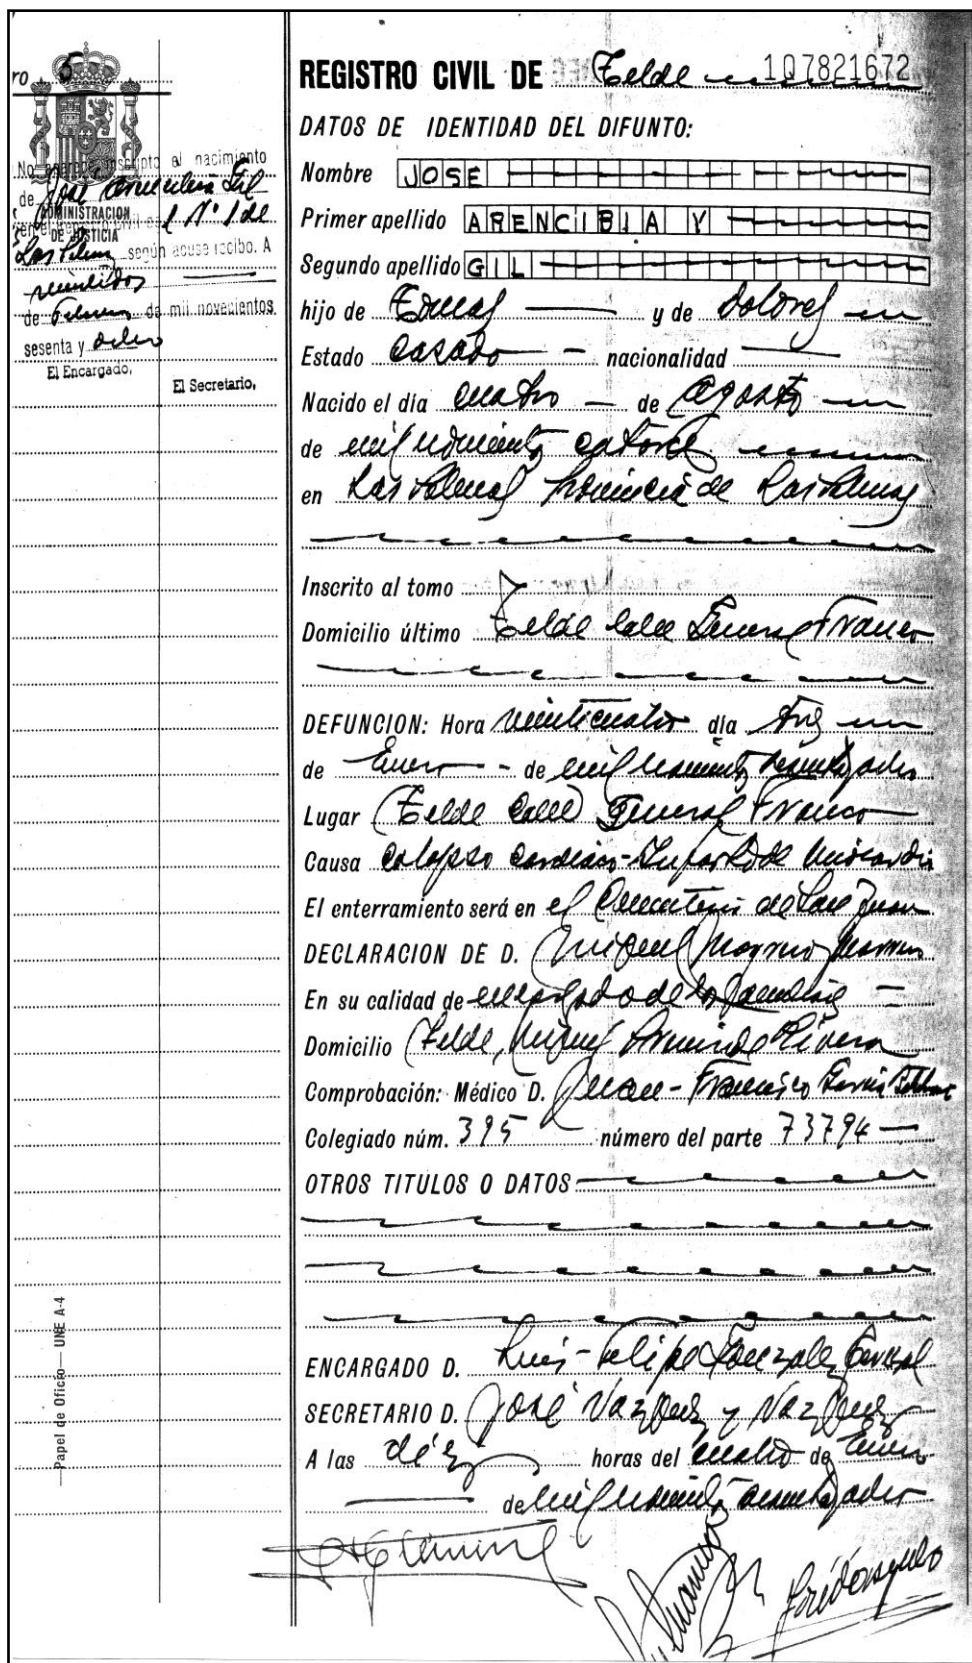 ro 5
No aparece inscripto el nacimiento
de José Arencibia Gil
ADMINISTRACION
DE JUSTICIA
en el Registro Civil nº 1 de
Las Palmas según acuse recibo. A
veintidos
de Febrero de mil novecientos
sesenta y ocho
El Encargado,
El Secretario,
REGISTRO CIVIL DE Telde 107821672
DATOS DE IDENTIDAD DEL DIFUNTO:
Nombre JOSE
Primer apellido ARENCIBIA Y
Segundo apellido GIL
hijo de Tomas y de Dolores
Estado Casado nacionalidad
Nacido el día cuatro de Agosto
de mil novecientos catorce
en Las Palmas Provincia de Las Palmas
Inscrito al tomo
Domicilio último Telde calle General Franco
DEFUNCION: Hora veinticuatro día tres
de Enero de mil novecientos sesenta y ocho
Lugar Telde Calle General Franco
Causa Colapso cardiaco-Infarto de Miocardio
El enterramiento será en el Cementerio de San Juan
DECLARACION DE D. Miguel Moreno
En su calidad de encargado de la familia
Domicilio Telde, Miguel Primo de Rivera
Comprobación: Médico D. Juan-Francisco García
Colegiado núm. 395 número del parte 73794
OTROS TITULOS O DATOS
ENCARGADO D. Luis-Felipe Gonzalez
SECRETARIO D. José Vazquez y Vazquez
A las diéz horas del cuatro de Enero
de mil novecientos sesenta y ocho
Papel de Oficio — UNE A-4